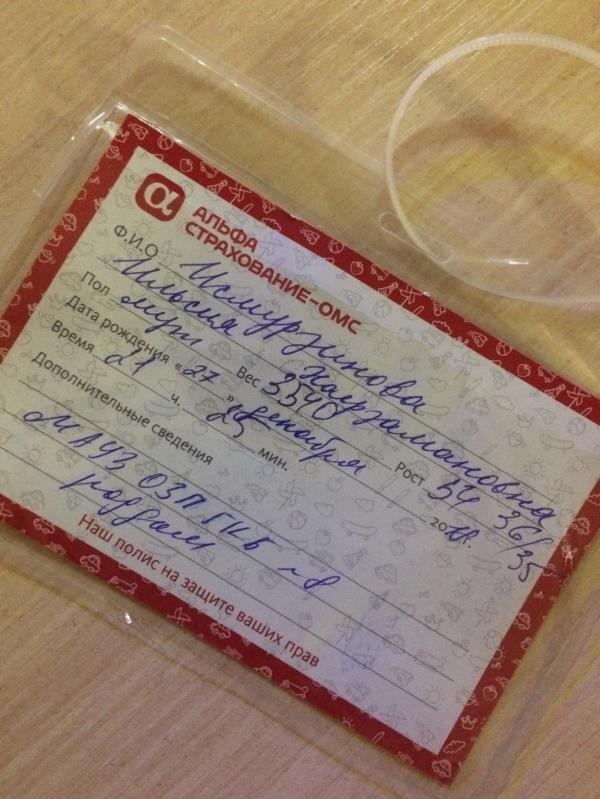 АЛЬФА
СТРАХОВАНИЕ-ОМС
Ф.И.О Исмурзинова
Ильсия Каирамановна
Пол муж Вес 3540 Рост 54 36/35
Дата рождения «27» декабря 2018.
Время 21 ч. 25 мин.
Дополнительные сведения
МАУЗ ОЗП ГКБ №8
роддом
Наш полис на защите ваших прав